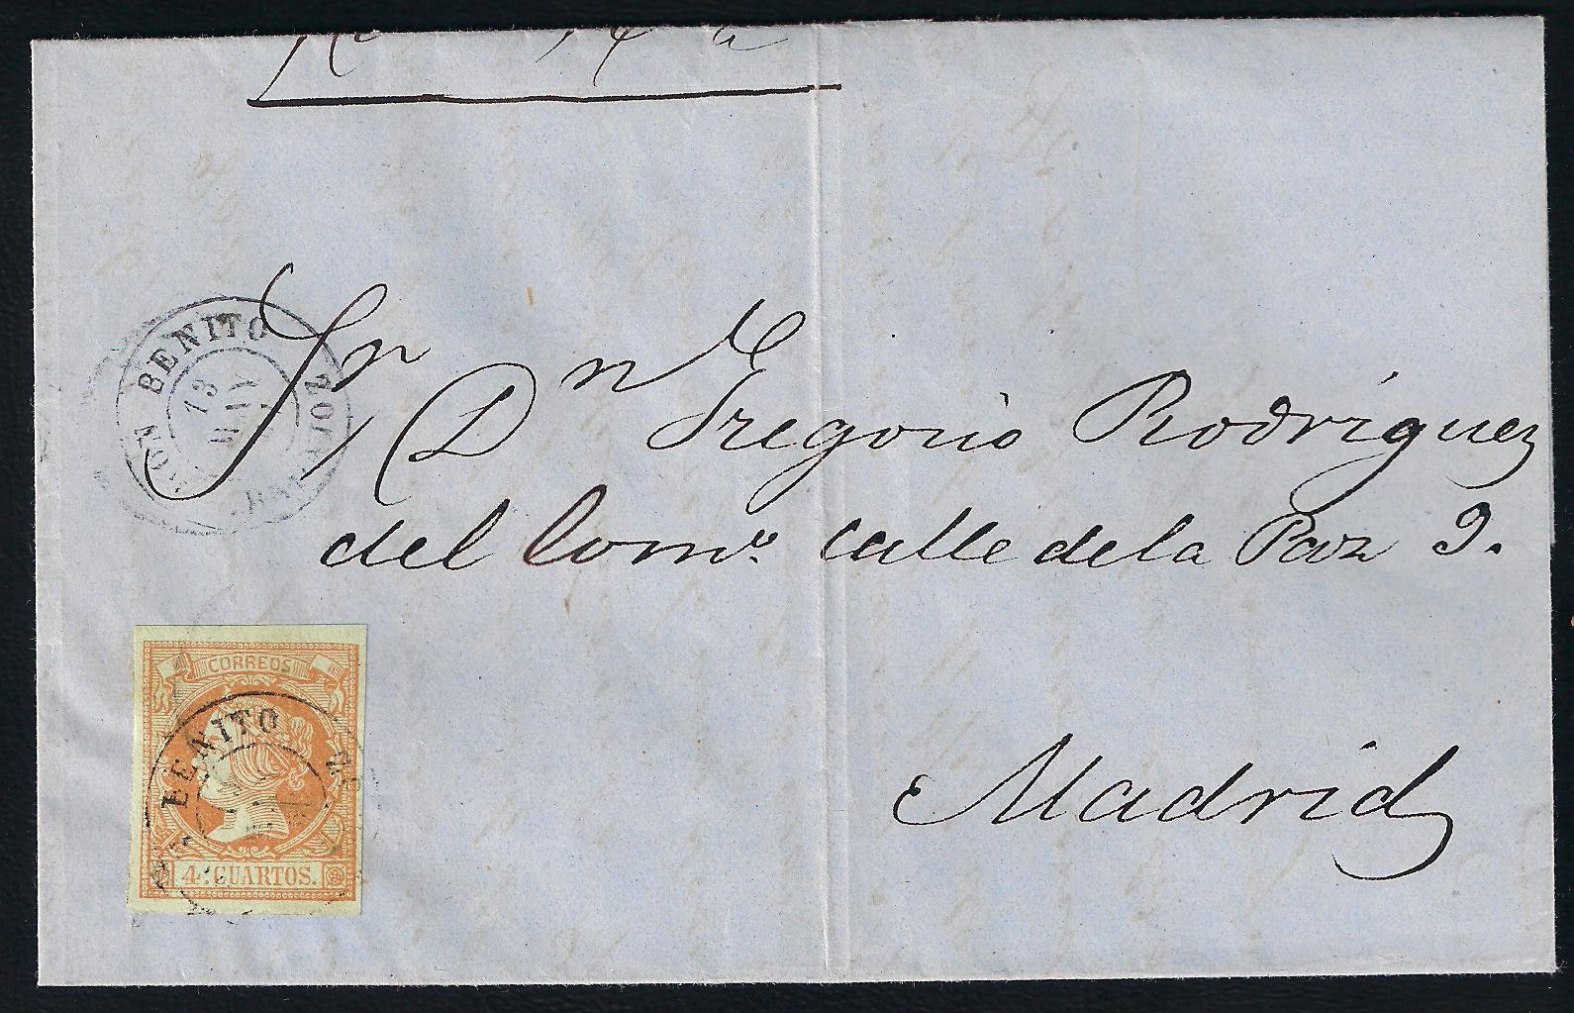 DON BENITO
13
MAY
BADAJOZ.
Sr Dn Gregorio Rodriguez
del Como. calle de la Paz 9.
Madrid
CORREOS
BENITO
4 CUARTOS.